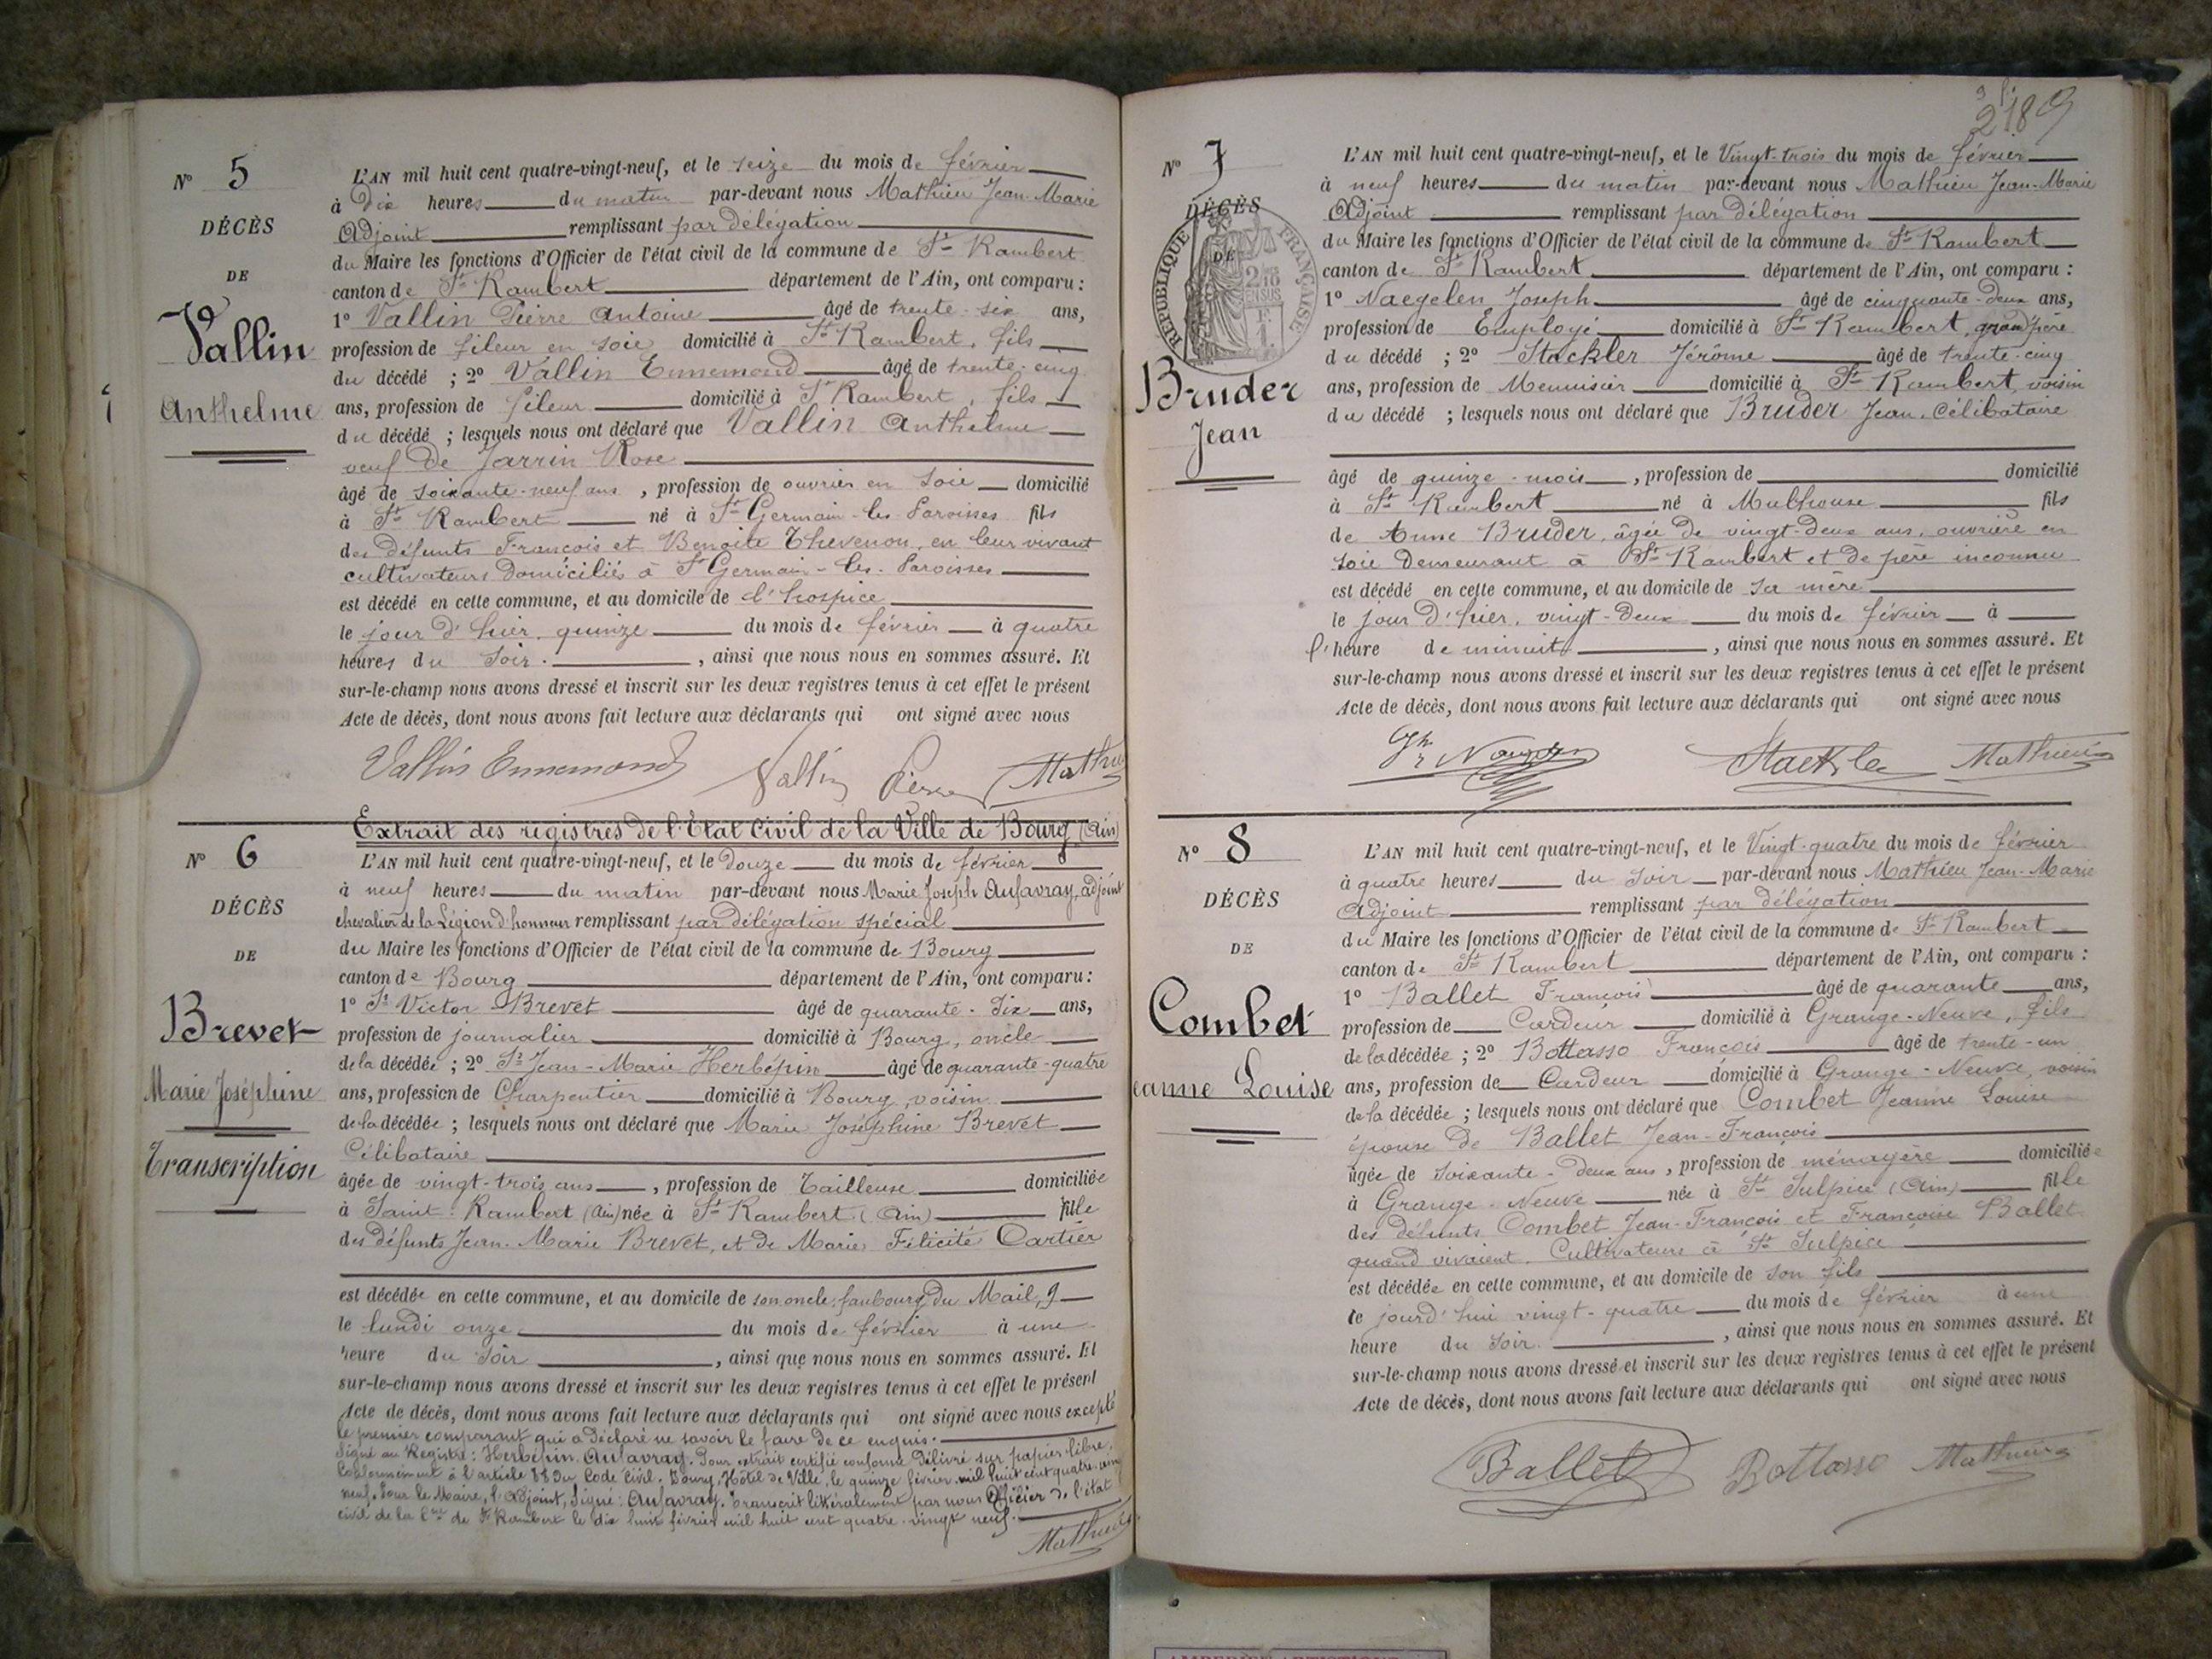 N° 5
DÉCÈS
DE
Vallin
Anthelme
L'AN mil huit cent quatre-vingt-neuf, et le seize du mois de février
à dix heures du matin par-devant nous Mathieu Jean-Marie
Adjoint remplissant par délégation
du Maire les fonctions d'Officier de l'état civil de la commune de St Rambert
canton de St Rambert département de l'Ain, ont comparu :
1° Vallin Pierre Antoine âgé de trente-six ans,
profession de fileur en soie domicilié à St Rambert, fils
du décédé ; 2° Vallin Ennemond âgé de trente-cinq
ans, profession de fileur domicilié à St Rambert, fils
du décédé ; lesquels nous ont déclaré que Vallin Anthelme
veuf de Jarrin Rose
âgé de soixante-neuf ans, profession de ouvrier en soie domicilié
à St Rambert né à St Germain-les-Paroisses fils
des défunts François et Benoite Thevenon, en leur vivant
cultivateurs domiciliés à St Germain-les-Paroisses
est décédé en cette commune, et au domicile de l'hospice
le jour d'hier, quinze du mois de février à quatre
heures du soir, ainsi que nous nous en sommes assuré. Et
sur-le-champ nous avons dressé et inscrit sur les deux registres tenus à cet effet le présent
Acte de décès, dont nous avons fait lecture aux déclarants qui ont signé avec nous
Vallin Ennemond Vallin Pierre Mathieu
Extrait des registres de l'État Civil de la Ville de Bourg (Ain)
N° 6
DÉCÈS
DE
Brevet
Marie Joséphine
Transcription
L'AN mil huit cent quatre-vingt-neuf, et le douze du mois de février
à neuf heures du matin par-devant nous Marie Joseph Aufavray, adjoint
chevalier de la Légion d'honneur remplissant par délégation spécial
du Maire les fonctions d'Officier de l'état civil de la commune de Bourg
canton de Bourg département de l'Ain, ont comparu :
1° Sr Victor Brevet âgé de quarante-six ans,
profession de journalier domicilié à Bourg, oncle
de la décédée ; 2° Sr Jean-Marie Herbépin âgé de quarante-quatre
ans, profession de Charpentier domicilié à Bourg, voisin
de la décédée ; lesquels nous ont déclaré que Marie Joséphine Brevet
Célibataire
âgée de vingt-trois ans, profession de Tailleuse domiciliée
à Saint-Rambert (Ain) née à St Rambert (Ain) fille
des défunts Jean-Marie Brevet, et de Marie Félicité Cartier
est décédée en cette commune, et au domicile de son oncle, faubourg du Mail, 9
le lundi onze du mois de février à une
heure du soir, ainsi que nous nous en sommes assuré. Et
sur-le-champ nous avons dressé et inscrit sur les deux registres tenus à cet effet le présent
Acte de décès, dont nous avons fait lecture aux déclarants qui ont signé avec nous excepté
le premier comparant qui a déclaré ne savoir le faire de ce enquis.
Signé au Registre : Herbépin. Aufavray. Pour extrait certifié conforme délivré sur papier libre,
Conformément à l'article du Code Civil. Bourg, Hôtel de Ville, le quinze février mil huit cent quatre-vingt
neuf. Pour le Maire, l'Adjoint, Signé : Aufavray. Transcrit littéralement par nous Officier de l'état
civil de la Cne de St Rambert le dix huit février mil huit cent quatre-vingt neuf.
Mathieu
2189
N° 7
DÉCÈS
DE
RÉPUBLIQUE FRANÇAISE
Bruder
Jean
L'AN mil huit cent quatre-vingt-neuf, et le Vingt-trois du mois de février
à neuf heures du matin par-devant nous Mathieu Jean-Marie
Adjoint remplissant par délégation
du Maire les fonctions d'Officier de l'état civil de la commune de St Rambert
canton de St Rambert département de l'Ain, ont comparu :
1° Naegelen Joseph âgé de cinquante-deux ans,
profession de Employé domicilié à St Rambert, grand père
du décédé ; 2° Stackler Jérôme âgé de trente-cinq
ans, profession de Menuisier domicilié à St Rambert, voisin
du décédé ; lesquels nous ont déclaré que Bruder Jean, Célibataire
âgé de quinze mois, profession de domicilié
à St Rambert né à Mulhouse fils
de Anne Bruder, âgée de vingt-deux ans, ouvrière en
soie demeurant à St Rambert et de père inconnu
est décédé en cette commune, et au domicile de sa mère
le jour d'hier, vingt-deux du mois de février à
l'heure de minuit, ainsi que nous nous en sommes assuré. Et
sur-le-champ nous avons dressé et inscrit sur les deux registres tenus à cet effet le présent
Acte de décès, dont nous avons fait lecture aux déclarants qui ont signé avec nous
Stackler Mathieu
N° 8
DÉCÈS
DE
Combet
eanne Louise
L'AN mil huit cent quatre-vingt-neuf, et le Vingt-quatre du mois de février
à quatre heures du soir par-devant nous Mathieu Jean-Marie
Adjoint remplissant par délégation
du Maire les fonctions d'Officier de l'état civil de la commune de St Rambert
canton de St Rambert département de l'Ain, ont comparu :
1° Ballet François âgé de quarante ans,
profession de Cardeur domicilié à Grange-Neuve, fils
de la décédée ; 2° Bottasso François âgé de trente-un
ans, profession de Cardeur domicilié à Grange-Neuve, voisin
de la décédée ; lesquels nous ont déclaré que Combet Jeanne Louise
épouse de Ballet Jean-François
âgée de soixante-deux ans, profession de ménagère domiciliée
à Grange-Neuve née à St Sulpice (Ain) fille
des défunts Combet Jean-François et Françoise Ballet
quand vivaient, Cultivateurs à St Sulpice
est décédée en cette commune, et au domicile de son fils
le jourd'hui vingt-quatre du mois de février à une
heure du soir, ainsi que nous nous en sommes assuré. Et
sur-le-champ nous avons dressé et inscrit sur les deux registres tenus à cet effet le présent
Acte de décès, dont nous avons fait lecture aux déclarants qui ont signé avec nous
Ballet Bottasso Mathieu